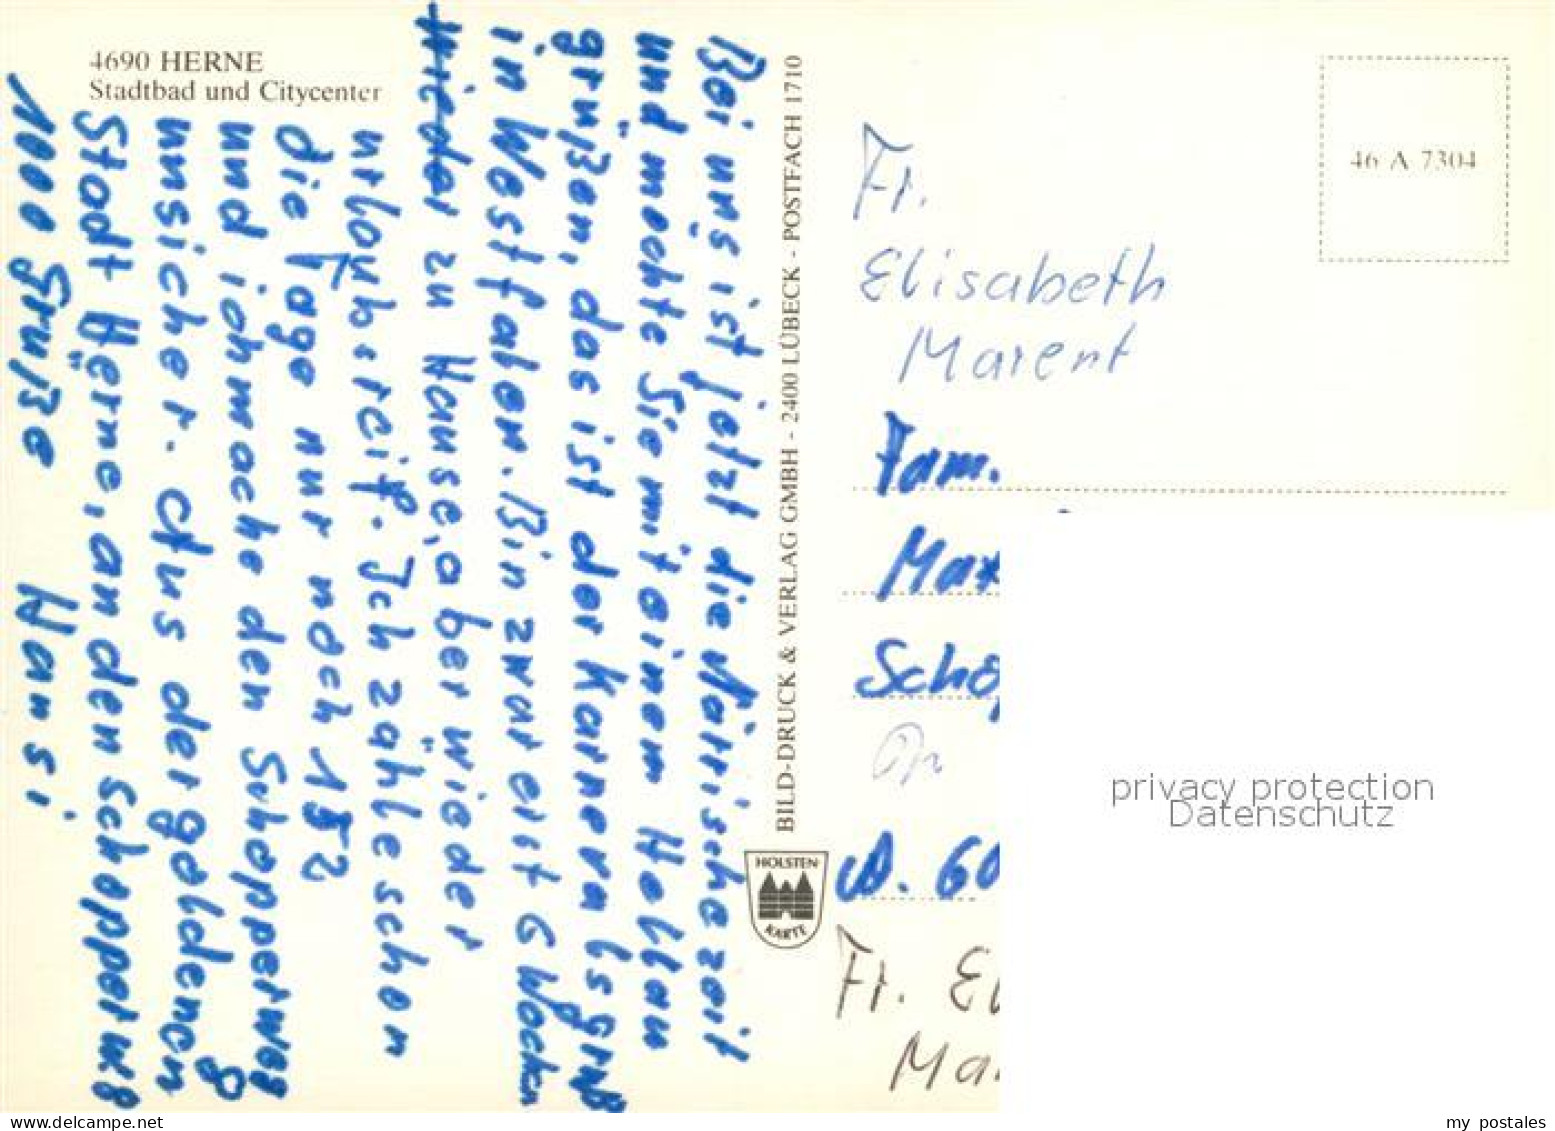 4690 HERNE
Stadtbad und Citycenter
Bei uns ist jetzt die Närrische zeit
und mochte Sie mit einem Hellau
grüßen, das ist der Karnevalsgruß
in Westfalen. Bin zwar erst 6 Wochen
wieder zu Hause, aber wieder
urlaubsreif. Ich zähle schon
die Tage nur noch 152
und ich mache den Schopperweg
unsicher. Aus der goldenen
Stadt Herne, an den schopperwg
1000 Grüße Hansi
BILD-DRUCK & VERLAG GMBH - 2400 LÜBECK - POSTFACH 1710
HOLSTEN-
KARTE
46 A 7304
Fr.
Elisabeth
Marent
Fam.
Max
Scho
A. 60
Fr. El
Ma
privacy protection
Datenschutz
my postales